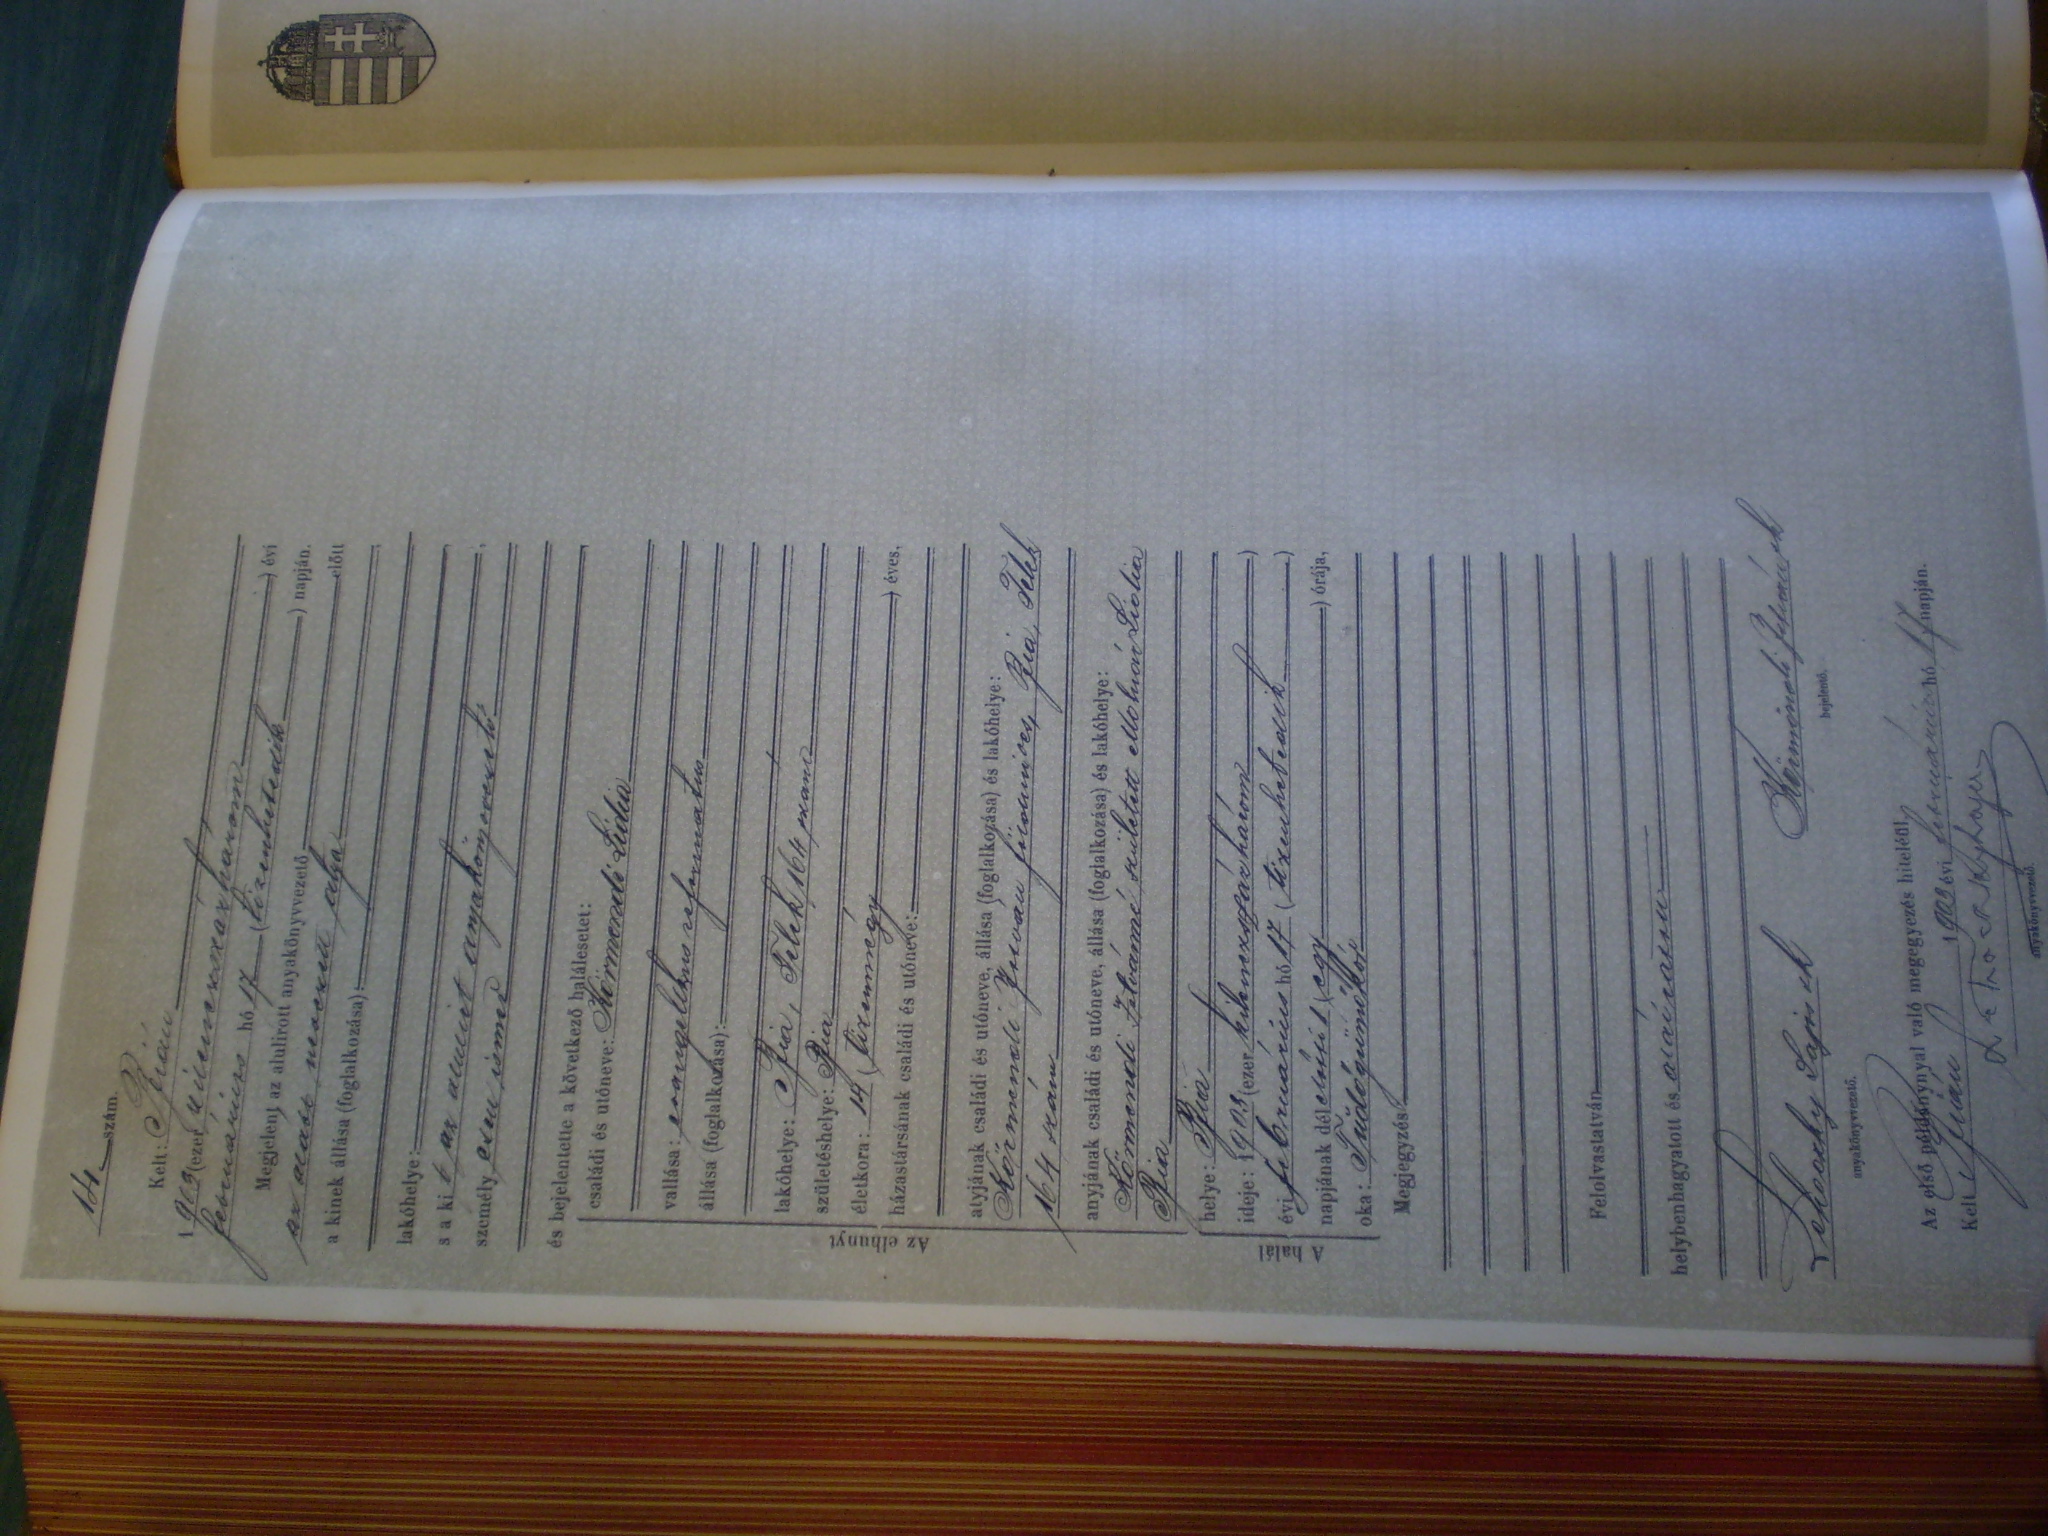 14 szám.
Kelt: Bián
1903 (ezer kilencszázhárom) évi
február hó 17 (tizenhetedik) napján.
Megjelent az alulirott anyakönyvvezető előtt
az alább nevezett atyja
a kinek állása (foglalkozása):
lakóhelye:
s a kit az alulirt anyakönyvvezető
személyesen ismer
és bejelentette a következő halálesetet:
Az elhunyt
családi és utóneve: Körmendi Lidia
vallása: evangelikus reformatus
állása (foglalkozása):
lakóhelye: Bia, Telek, 164 szám
születéshelye: Bia
életkora: 14 (tizennégy) éves,
házastársának családi és utóneve:
atyjának családi és utóneve, állása (foglalkozása) és lakóhelye:
Körmendi István Bia, Telek
164 szám
anyjának családi és utóneve, állása (foglalkozása) és lakóhelye:
Körmendi Istvánné született Molnár Lidia
Bia
A halál
helye: Bia
ideje: 1903 (ezer kilencszázhárom)
évi február hó 17 (tizenhetedik)
napjának délelőtti 1 (egy) órája,
oka: Tüdőgümőkór
Megjegyzés:
Felolvastatván
helybenhagyatott és aláiratott
Lehoczky Lajos Körmendi
anyakönyvvezető. bejelentő.
Az első példánynyal való megegyezés hiteléül
Kelt Bián 1903 évi február hó 17 napján.
anyakönyvvezető.